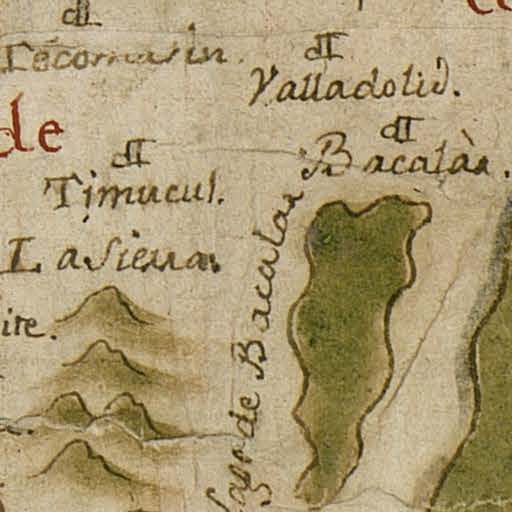 Tecomasin.
Valladolid.
de
Bacalàr.
Timucul.
La Sierra.
ite.
de Bacalar